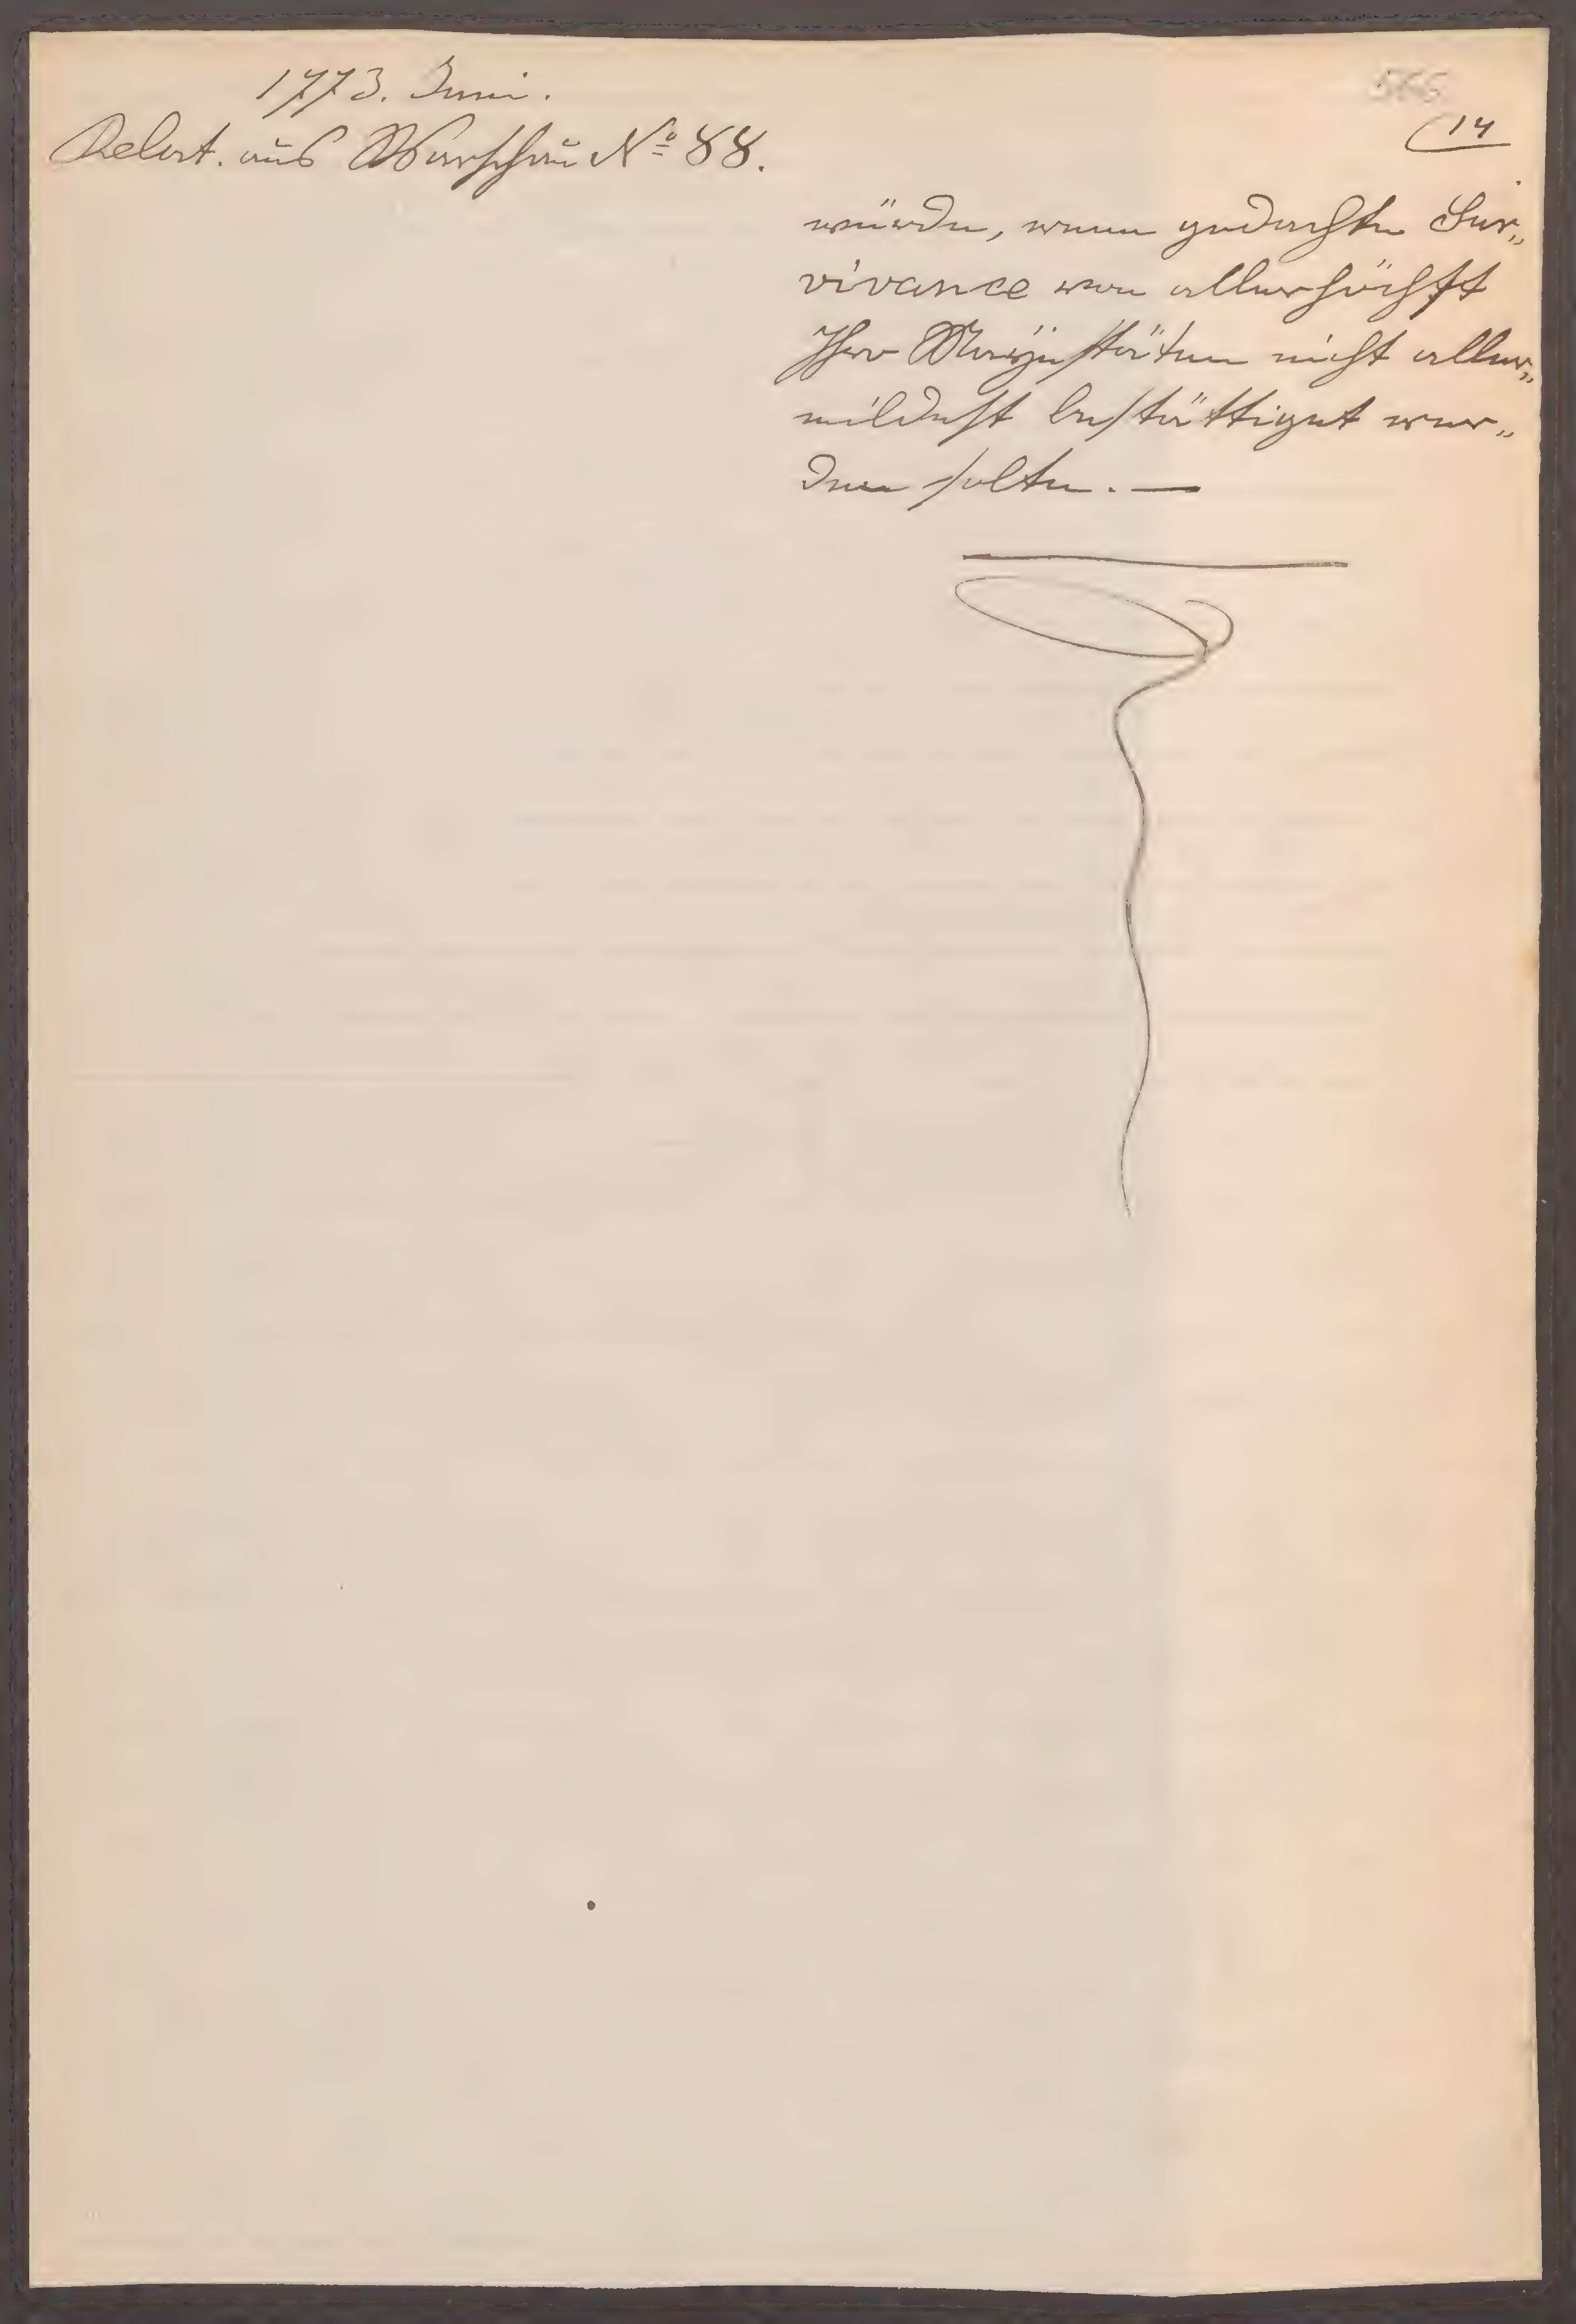 1773. Juni.
566
14
Relat. aus Warschau No 88.
würde, wenn gedachte Sur„
vivance von allerhöchst
Ihro Majestäten nicht aller„
mildest bestättiget wer„
den solte. —